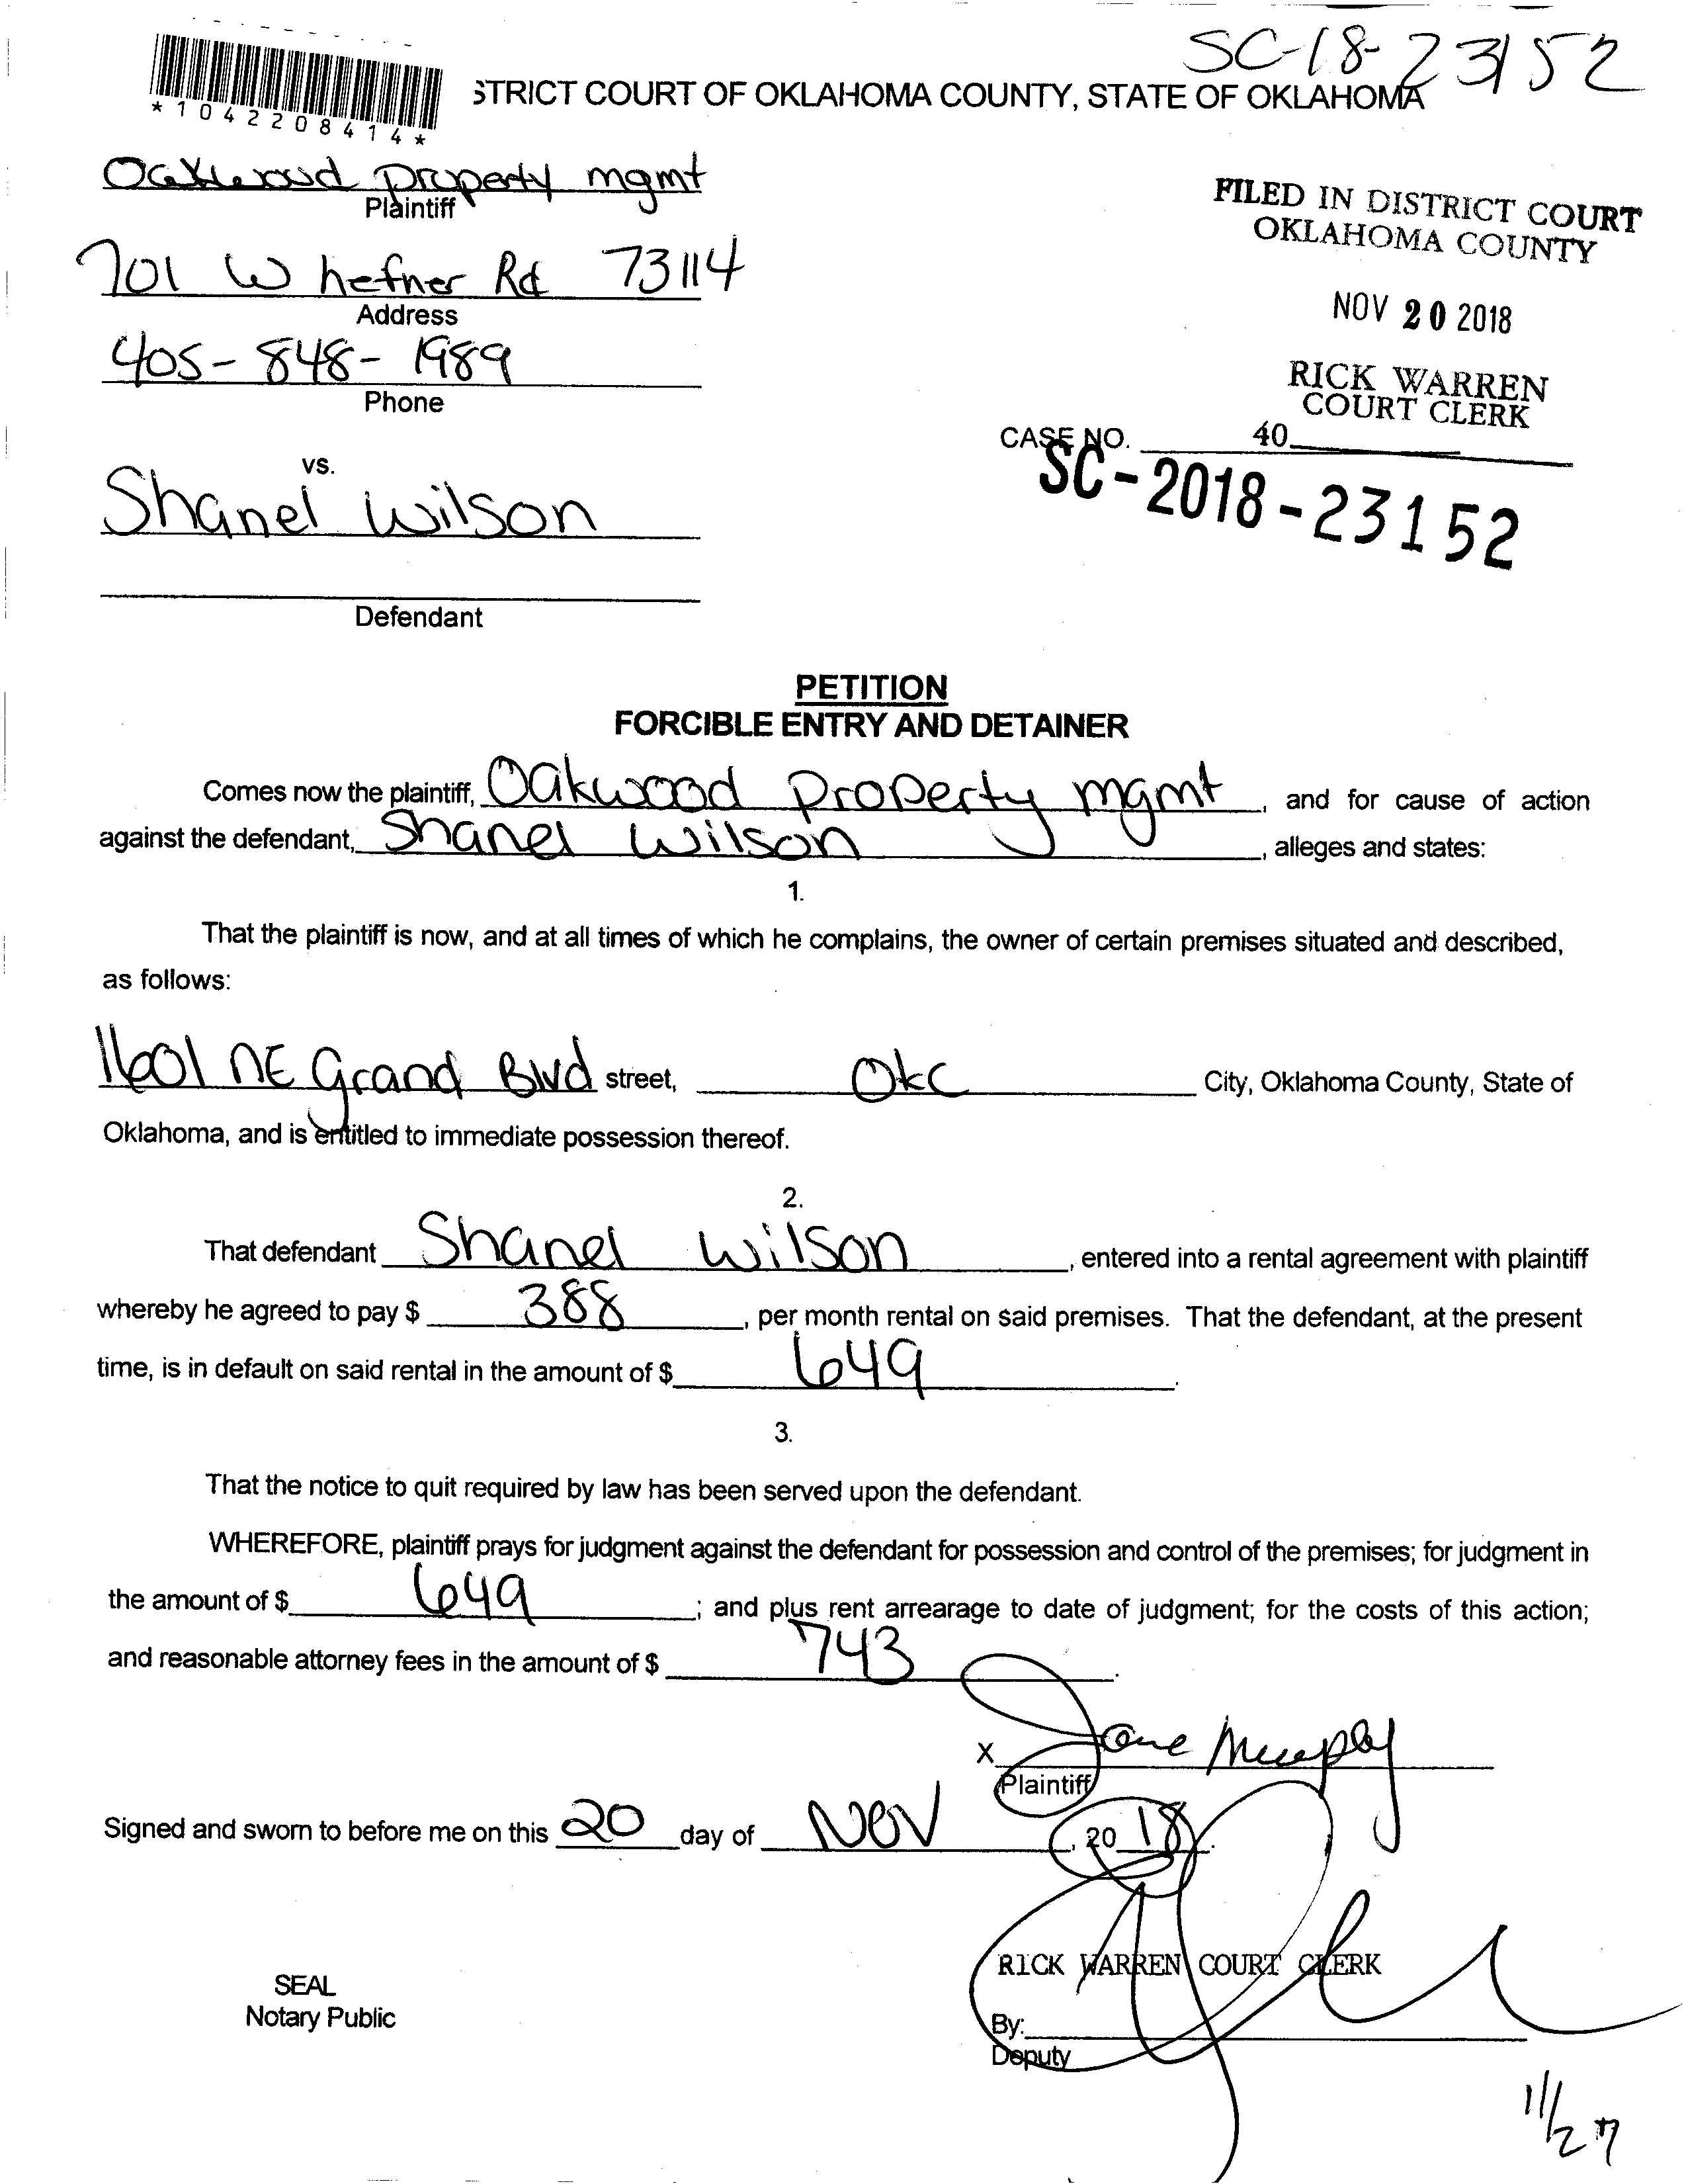 SC-18-23152
*1042208414*
STRICT COURT OF OKLAHOMA COUNTY, STATE OF OKLAHOMA
Oakwood property mgmt
Plaintiff
701 W hefner Rd 73114
Address
405-848-1989
Phone
vs.
Shanel Wilson
Defendant
FILED IN DISTRICT COURT
OKLAHOMA COUNTY
NOV 20 2018
RICK WARREN
COURT CLERK
40
CASE NO.
SC-2018-23152
PETITION
FORCIBLE ENTRY AND DETAINER
Comes now the plaintiff, Oakwood Property mgmt, and for cause of action
against the defendant, Shanel Wilson, alleges and states:
1.
That the plaintiff is now, and at all times of which he complains, the owner of certain premises situated and described,
as follows:
1601 NE Grand Blvd street, Okc City, Oklahoma County, State of
Oklahoma, and is entitled to immediate possession thereof.
2.
That defendant Shanel Wilson, entered into a rental agreement with plaintiff
whereby he agreed to pay $ 388, per month rental on said premises. That the defendant, at the present
time, is in default on said rental in the amount of $ 649.
3.
That the notice to quit required by law has been served upon the defendant.
WHEREFORE, plaintiff prays for judgment against the defendant for possession and control of the premises; for judgment in
the amount of $ 649; and plus rent arrearage to date of judgment; for the costs of this action;
and reasonable attorney fees in the amount of $ 743.
X Jane Murphy
Plaintiff
Signed and sworn to before me on this 20 day of NOV, 2018.
RICK WARREN COURT CLERK
SEAL
Notary Public
By:
Deputy
11/27